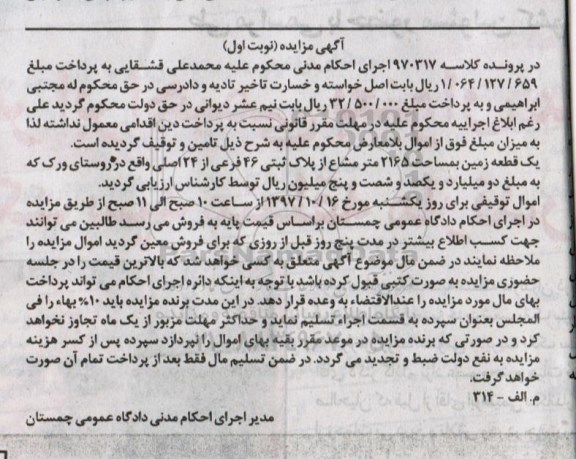 آگهی مزایده (نوبت اول)
در پرونده کلاسه ۹۷۰۳۱۷ اجرای احکام مدنی محکوم علیه محمدعلی قشقایی به پرداخت مبلغ
۱/۰۶۴/۱۲۷/۶۵۹ ریال بابت اصل خواسته و خسارت تاخیر تادیه و دادرسی در حق محکوم له مجتبی
ابراهیمی و به پرداخت مبلغ ۳۲/۵۰۰/۰۰۰ ریال بابت نیم عشر دیوانی در حق دولت محکوم گردید علی
رغم ابلاغ اجراییه محکوم علیه در مهلت مقرر قانونی نسبت به پرداخت دین اقدامی معمول نداشته لذا
به میزان مبلغ فوق از اموال بلامعارض محکوم علیه به شرح ذیل تامین و توقیف گردیده است.
یک قطعه زمین بمساحت ۲۱۶۵ متر مشاع از پلاک ثبتی ۴۶ فرعی از ۲۴ اصلی واقع در روستای ورک که
به مبلغ دو میلیارد و یکصد و شصت و پنج میلیون ریال توسط کارشناس ارزیابی گردید.
اموال توقیفی برای روز یکشنبه مورخ ۱۳۹۷/۱۰/۱۶ از ساعت ۱۰ صبح الی ۱۱ صبح از طریق مزایده
در اجرای احکام دادگاه عمومی چمستان براساس قیمت پایه به فروش می رسد طالبین می توانند
جهت کسب اطلاع بیشتر در مدت پنج روز قبل از روزی که برای فروش معین گردید اموال مزایده را
ملاحظه نمایند در ضمن مال موضوع آگهی متعلق به کسی خواهد شد که بالاترین قیمت را در جلسه
حضوری مزایده به صورت کتبی قبول کرده باشد با توجه به اینکه دائره اجرای احکام می تواند پرداخت
بهای مال مورد مزایده را عندالاقتضاء به وعده قرار دهد. در این مدت برنده مزایده باید ۱۰% بهاء را فی
المجلس بعنوان سپرده به قسمت اجراء تسلیم نماید و حداکثر مهلت مزبور از یک ماه تجاوز نخواهد
کرد و در صورتی که برنده مزایده در موعد مقرر بقیه بهای اموال را نپردازد سپرده پس از کسر هزینه
مزایده به نفع دولت ضبط و تجدید می گردد. در ضمن تسلیم مال فقط بعد از پرداخت تمام آن صورت
خواهد گرفت.
م. الف - ۳۱۴
مدیر اجرای احکام مدنی دادگاه عمومی چمستان